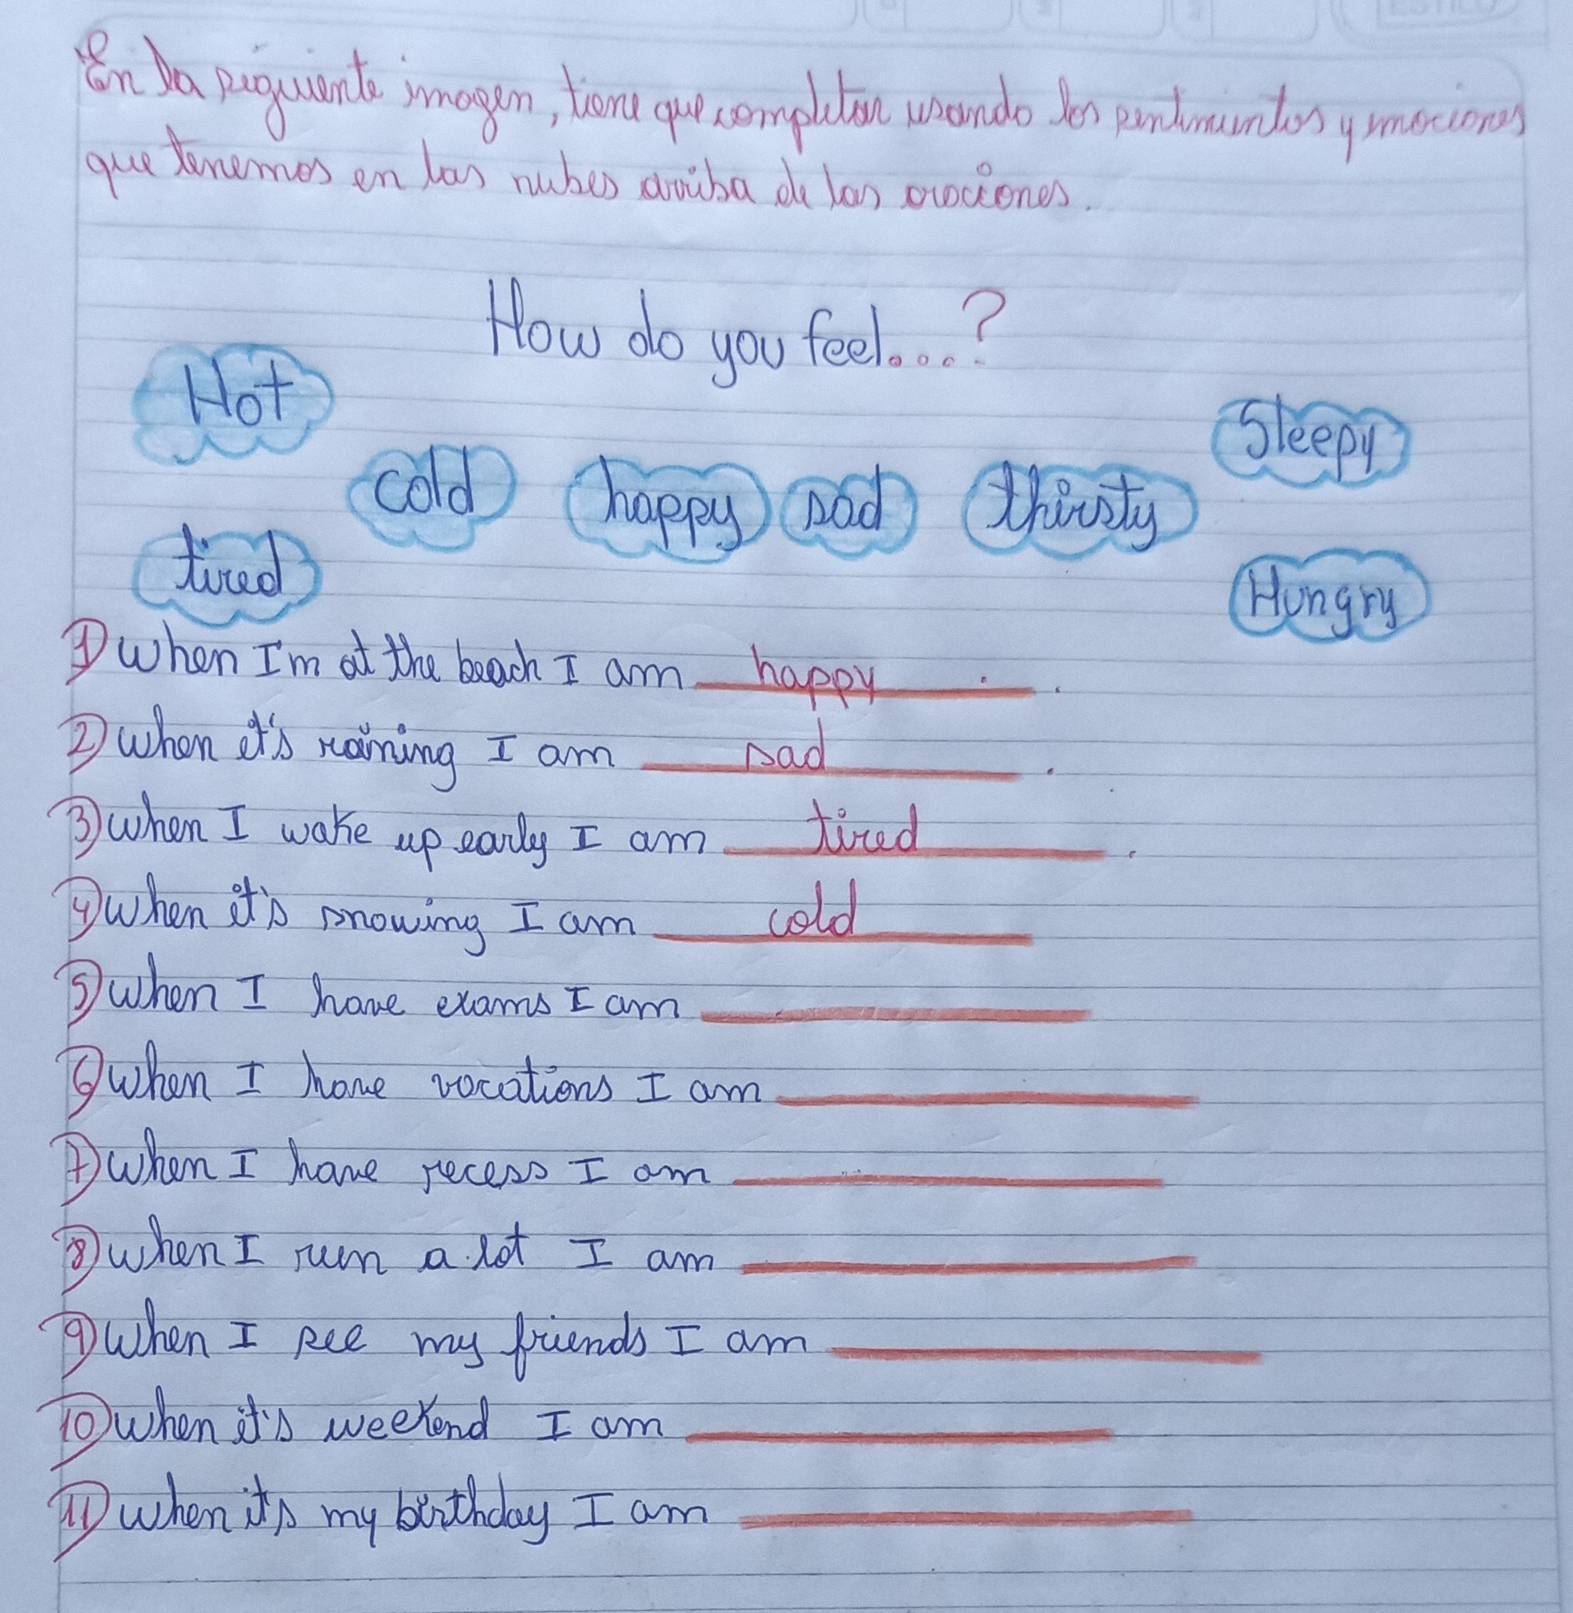 En la siguiente imagen, tiene que completar usando los sentimientos y mociones
que tenemos en las nubes arriba de las oraciones.
How do you feel....?
Hot
Sleepy
cold
happy
sad
thirsty
tired
Hungry
1) When I'm at the beach I am happy.
2) When it's raining I am sad.
3) When I wake up early I am tired.
4) When it's snowing I am cold
5) When I have exams I am
6) When I have vacations I am
7) When I have recess I am
8) When I run a lot I am
9) When I see my friends I am
10) When it's weekend I am
11) When it's my birthday I am